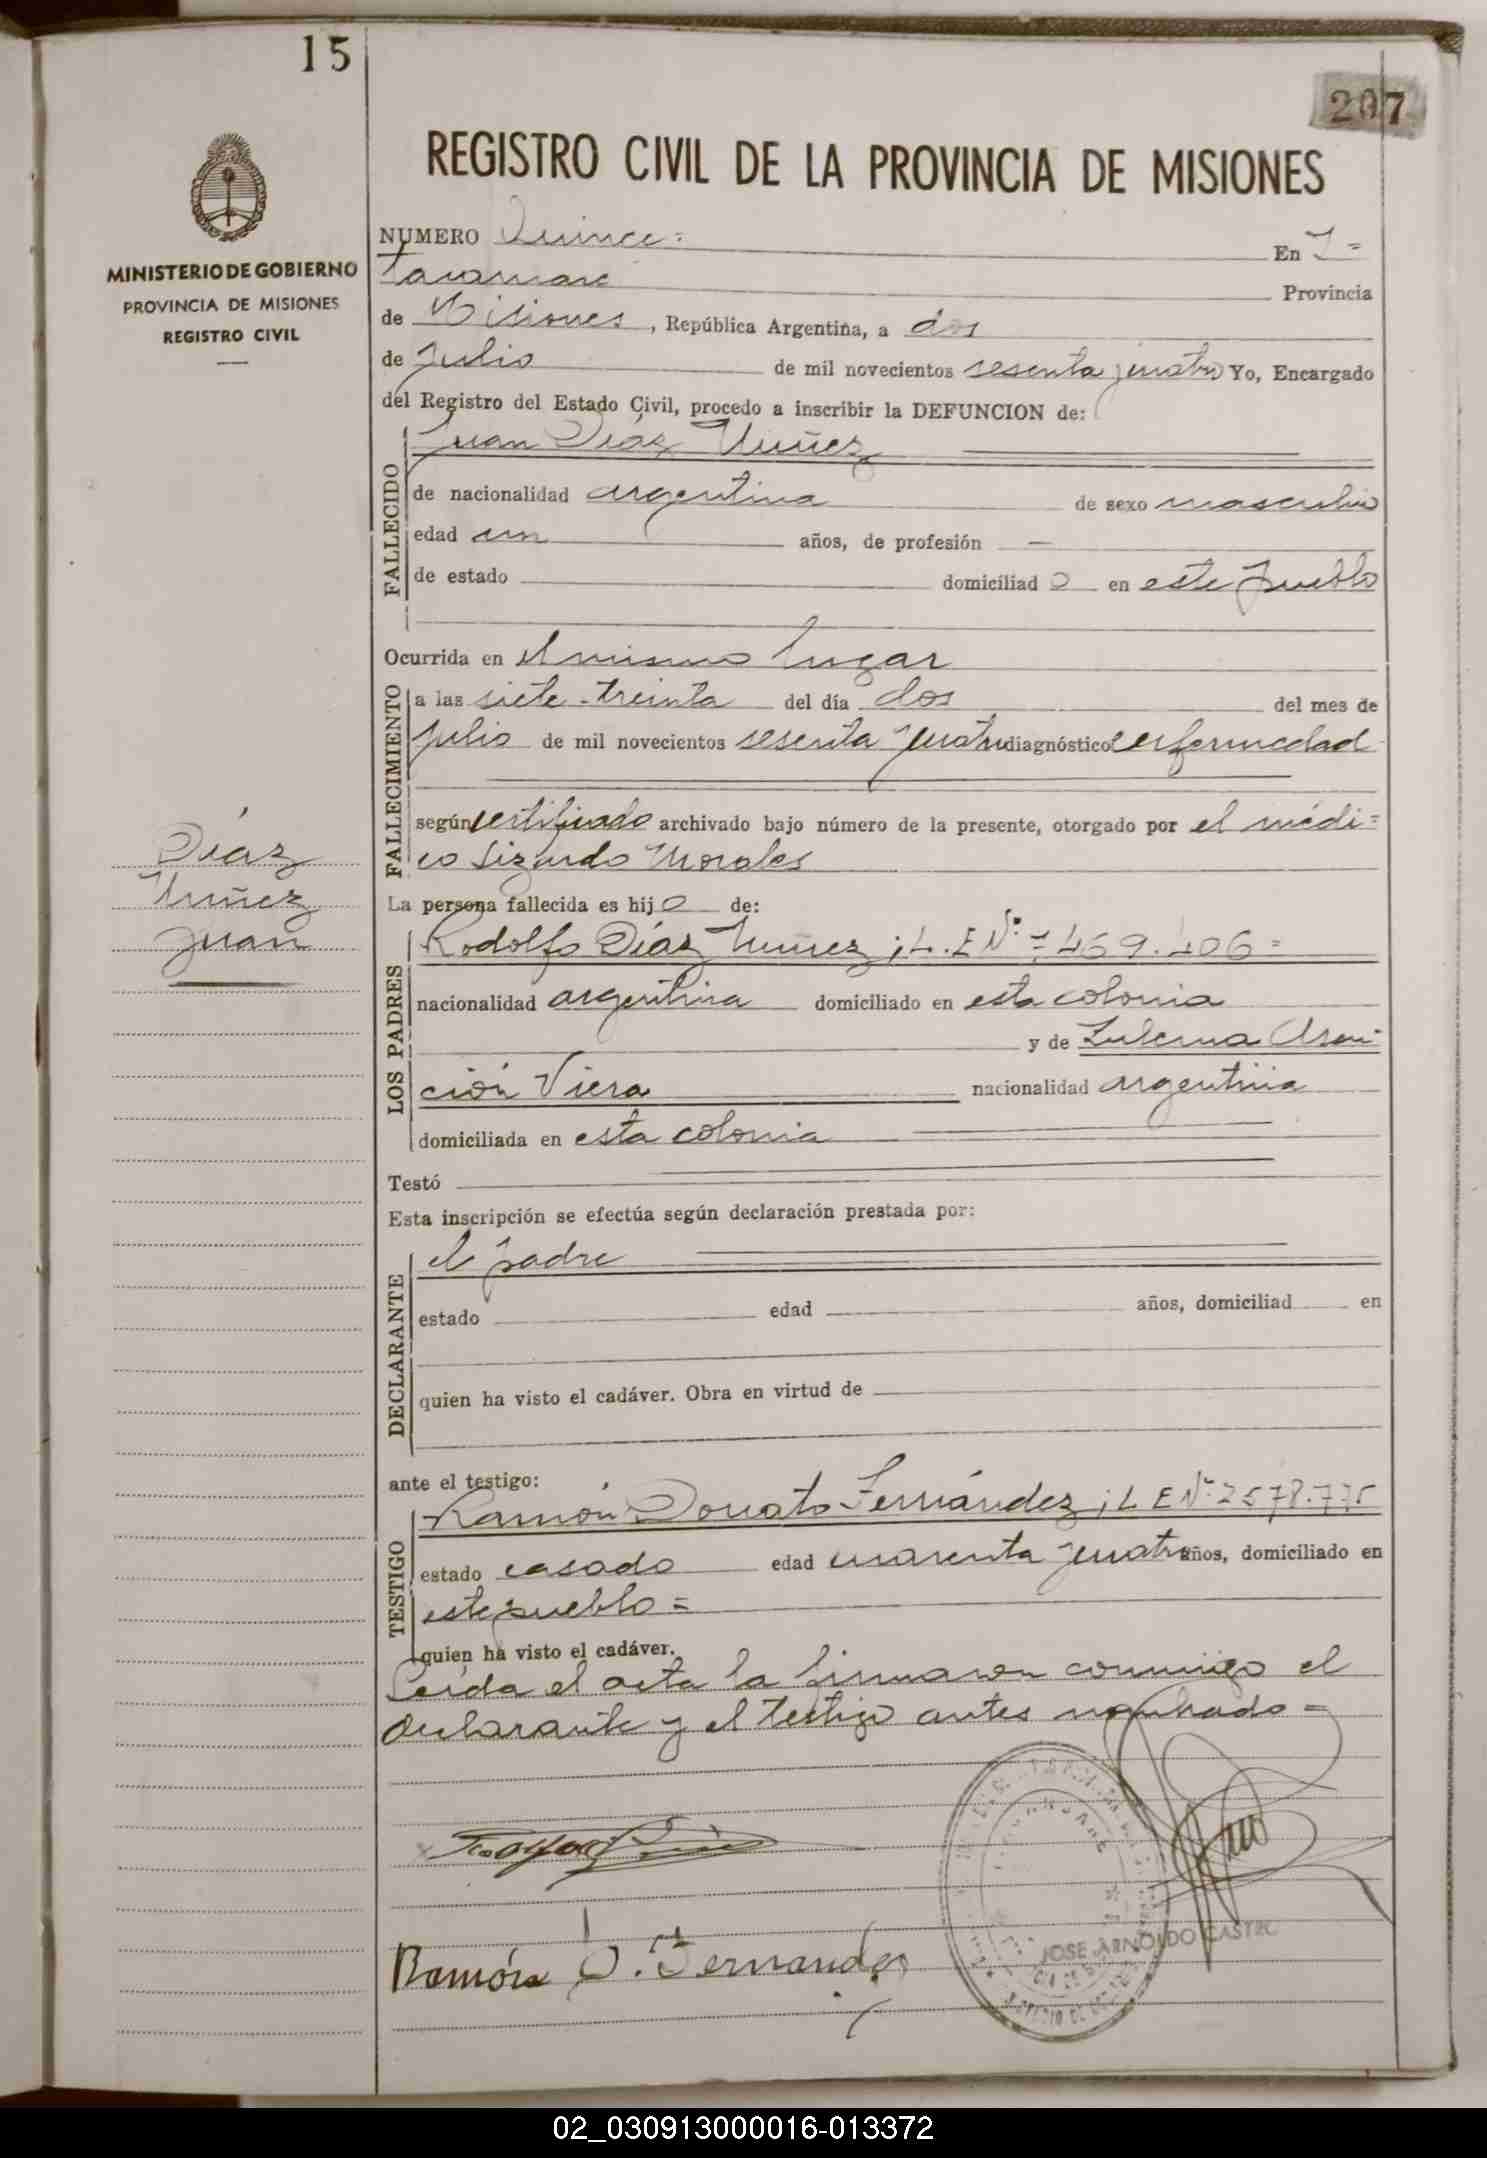 15
207
REGISTRO CIVIL DE LA PROVINCIA DE MISIONES
MINISTERIO DE GOBIERNO
PROVINCIA DE MISIONES
REGISTRO CIVIL
NUMERO Quince = En I =
Provincia
de Misiones, República Argentina, a dos
de Julio de mil novecientos sesenta y cuatro Yo, Encargado
del Registro del Estado Civil, procedo a inscribir la DEFUNCION de:
FALLECIDO
Juan Díaz Nuñez
de nacionalidad argentina de sexo masculino
edad un años, de profesión —
de estado domiciliad o en este pueblo
Ocurrida en el mismo lugar
FALLECIMIENTO
a las siete - treinta del día dos del mes de
Julio de mil novecientos sesenta y cuatro diagnóstico enfermedad
según certificado archivado bajo número de la presente, otorgado por el médi=
co Lizardo Morales
Díaz
Nuñez
Juan
La persona fallecida es hij o de:
LOS PADRES
Rodolfo Díaz Nuñez ; L.E Nº
nacionalidad argentina domiciliado en esta colonia
y de Zulema Asun=
ción Viera nacionalidad argentina
domiciliada en esta colonia
Testó
Esta inscripción se efectúa según declaración prestada por:
DECLARANTE
el padre
estado edad años, domiciliad en
quien ha visto el cadáver. Obra en virtud de
ante el testigo:
TESTIGO
Ramón Donato Fernández ; L E Nº 2578.775
estado casado edad cuarenta y cuatro años, domiciliado en
este pueblo =
quien ha visto el cadáver.
Leída el acta la firmaron conmigo el
declarante y el testigo antes nombrado =
Ramón D. Fernandez
JOSE ARNOLDO CASTRO
02_030913000016-013372